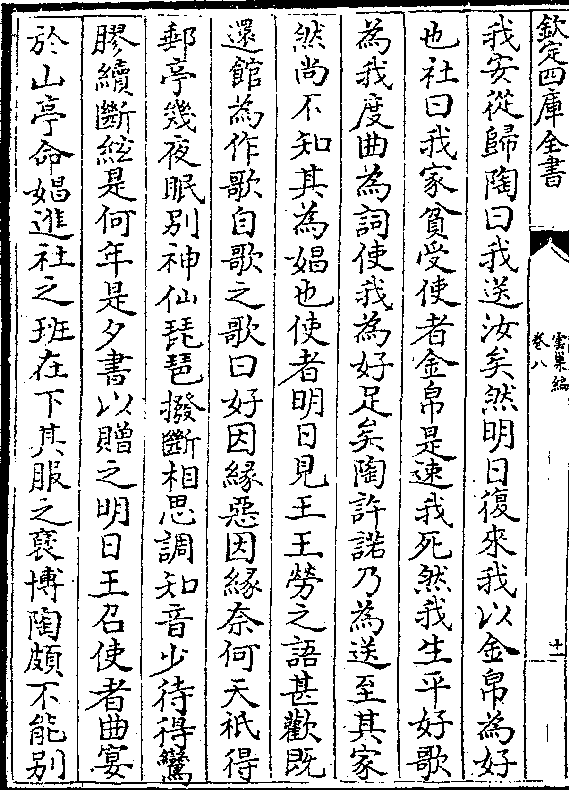 欽定四庫全書
雲巢編
卷八
十一
我安從歸陶曰我送汝矣然明日復來我以金帛為好
也社曰我家貧受使者金帛是速我死然我生平好歌
為我度曲為詞使我為好足矣陶許諾乃為送至其家
然尚不知其為娼也使者明日見王王勞之語甚歡既
還館為作歌自歌之歌曰好因緣惡因緣奈何天祇得
郵亭幾夜眠别神仙琵琶撥斷相思調知音少待得鸞
膠續斷絃是何年是夕書以贈之明日王召使者曲宴
於山亭命娼進社之班在下其服之裦博陶頗不能别